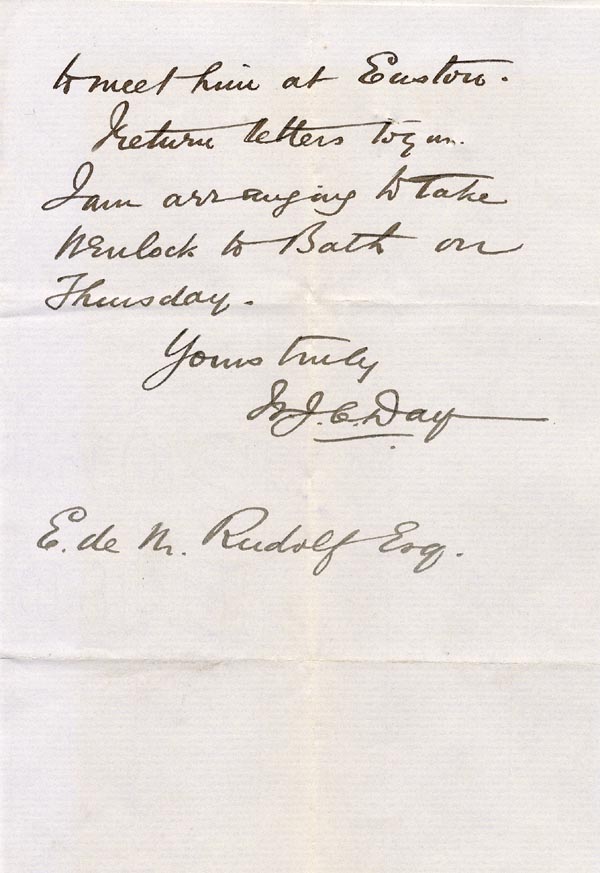 to meet him at Euston.
I return letters to you.
I am arranging to take
Wenlock to Bath on
Thursday.
Yours truly
W. J. C. Day
E. de M. Rudolf Esq.